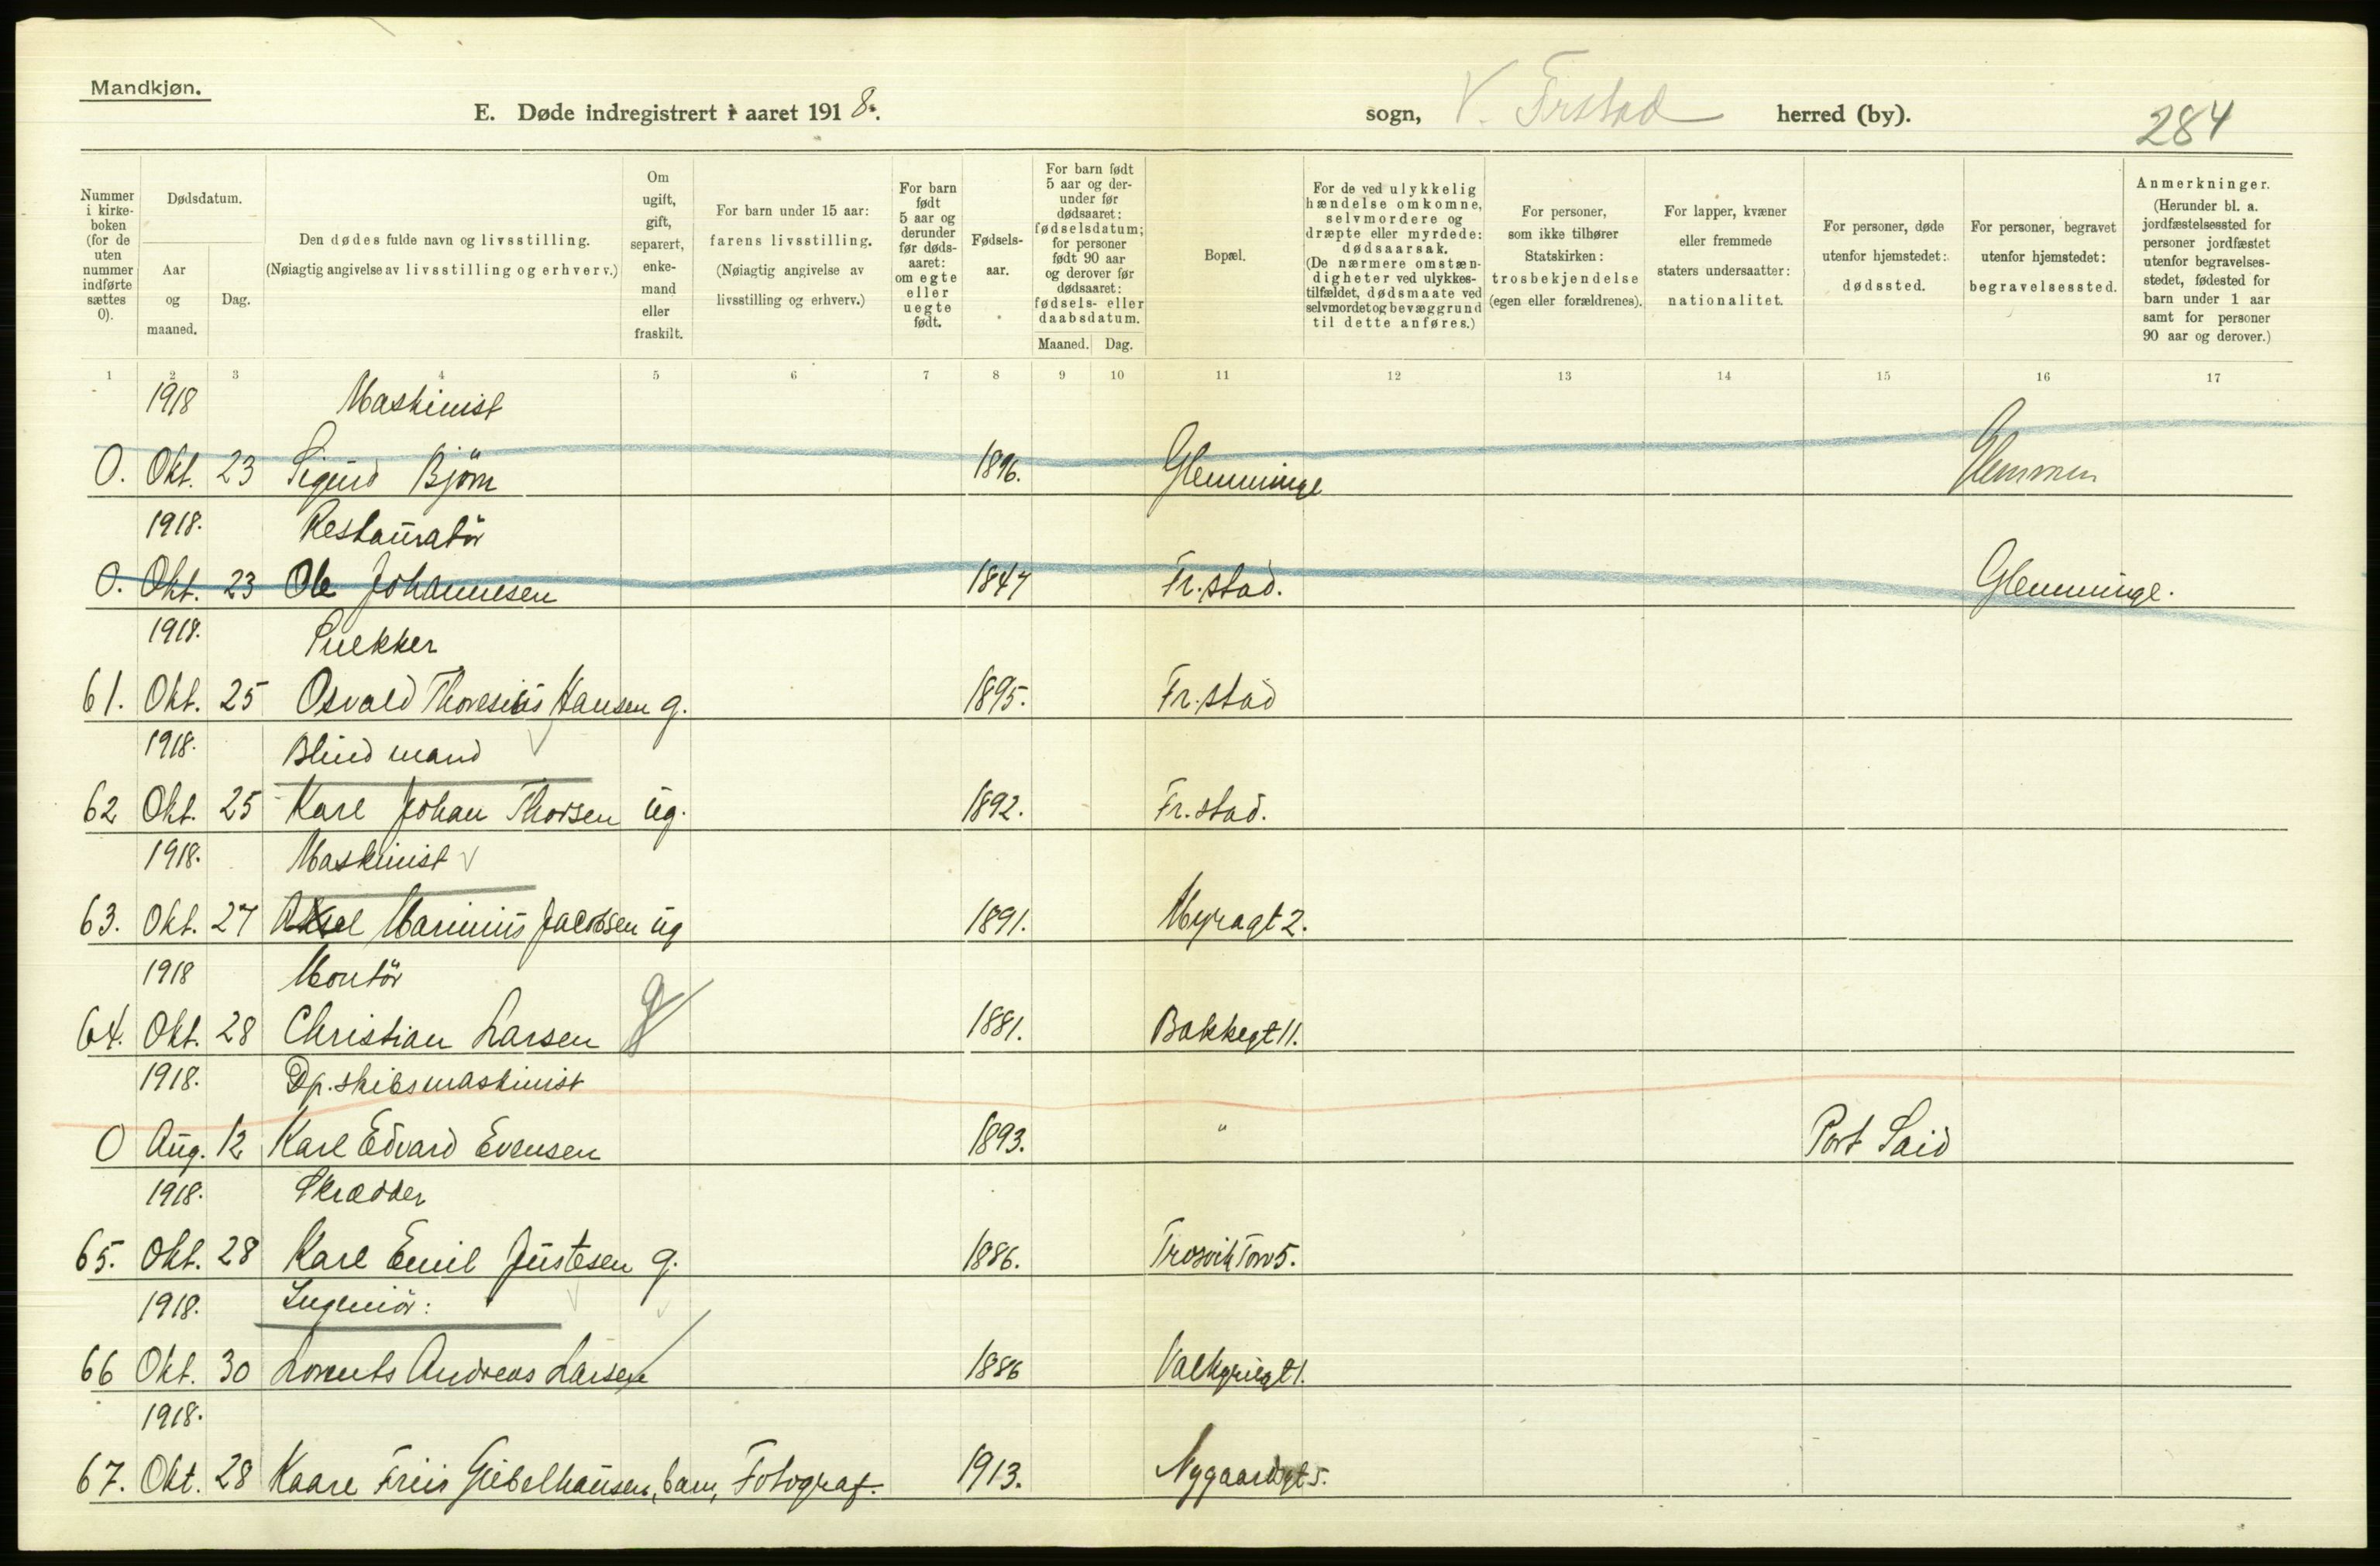 Mandkjøn.
E. Døde indregistrert i aaret 1918.
sogn, V. Frstad herred (by).
284
Nummer i kirkeboken (for de uten nummer indførte sættes 0).
Dødsdatum.
Aar og maaned.
Dag.
Den dødes fulde navn og livsstilling. (Nøiagtig angivelse av livsstilling og erhverv.)
Om ugift, gift, separert, enkemand eller fraskilt.
For barn under 15 aar: farens livsstilling. (Nøiagtig angivelse av livsstilling og erhverv.)
For barn født 5 aar og derunder før dødsaaret: om egte eller uegte født.
Fødselsaar.
For barn født 5 aar og derunder før dødsaaret: fødselsdatum; for personer født 90 aar og derover før dødsaaret: fødsels- eller daabsdatum.
Maaned. Dag.
Bopæl.
For de ved ulykkelig hændelse omkomne, selvmordere og dræpte eller myrdede: dødsaarsak. (De nærmere omstændigheter ved ulykkestilfældet, dødsmaate ved selvmordet og bevæggrund til dette anføres.)
For personer, som ikke tilhører Statskirken: trosbekjendelse (egen eller forældrenes).
For lapper, kvæner eller fremmede staters undersaatter: nationalitet.
For personer, døde utenfor hjemstedet: dødssted.
For personer, begravet utenfor hjemstedet: begravelsessted.
Anmerkninger. (Herunder bl. a. jordfæstelsessted for personer jordfæstet utenfor begravelsesstedet, fødested for barn under 1 aar samt for personer 90 aar og derover.)
1 2 3 4 5 6 7 8 9 10 11 12 13 14 15 16 17
1918 Maskinist
0. Okt. 23 Sigurd Björn 1896. Glemminge Glemmen
1918. Restauratör
0. Okt. 23 Ole Johannesen 1847 Fr.stad. Glemminge.
1918. Snekker
61. Okt. 25 Osvald Thoresius Hansen g. 1895. Fr.stad
1918. Blind mand
62 Okt. 25 Karl Johan Thorsen ug. 1892. Fr.stad.
1918. Maskinist
63. Okt. 27 Aksel Marinius Jacobsen ug 1891. Myragt 2.
1918 Montör
64. Okt. 28 Christian Larsen g 1881. Bakkegt 11.
1918. Dp.skibsmaskinist
0 Aug. 12 Karl Edvard Evensen 1893. " Port Said
1918. Skrædder
65. Okt. 28 Karl Emil Justesen g. 1886. Trosvik Torv 5.
1918. Ingeniör:
66 Okt. 30 Lorents Andreas Larsen 1886 Valkyriegt 1.
1918.
67. Okt. 28 Kaare Friis Giebelhausen, barn, Fotograf. 1913. Nygaardsgt 5.